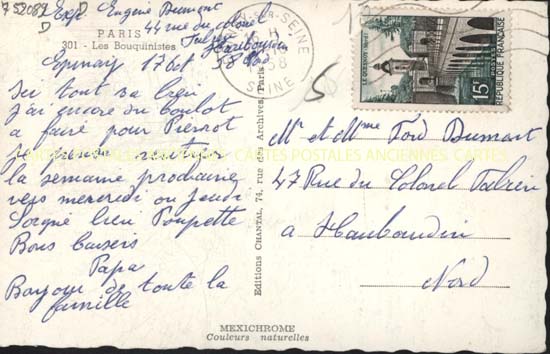 752089
D D
Exp. Eugène Dumont
44 rue du colonel
Fabrien Haubourdin
PARIS
301 - Les Bouquinistes
Epinay 17 Oct 58
Ici tout va bien
j'ai encore du boulot
a faire pour Pierrot
je pense rentrer
la semaine prochaine
vers mercredi ou jeudi
Soigne bien Poupette
Bons baisers
Papa
Bonjour de toute la
famille
SUR-SEINE
16 H
1958
SEINE
5
LE QUESNOY (NORD)
15F
REPUBLIQUE FRANÇAISE
Mr et Mme Dumont
47 Rue du Colonel Fabrien
a Haubourdin
Nord
Editions CHANTAL, 74, rue des Archives, Paris
CARTES POSTALES ANCIENNES CARTES
MEXICHROME
Couleurs naturelles